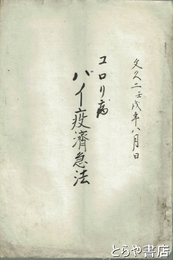 文久二壬戌年八月日
コロリ病
バイ疫済急法
とらや書店